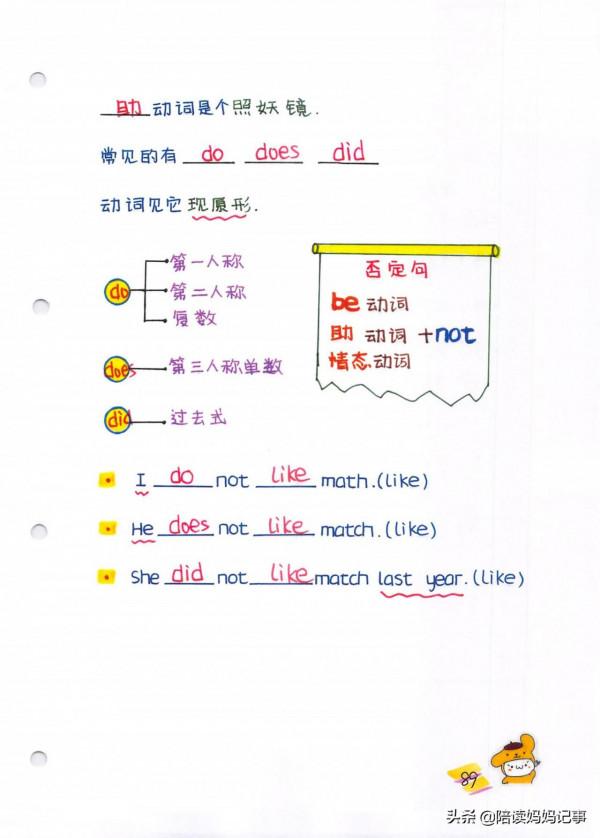 助动词是个照妖镜.
常见的有 do does did
动词见它现原形.
do
第一人称
第二人称
复数
does
第三人称单数
did
过去式
否定句
be动词
助 动词 +not
情态动词
I do not like math.(like)
He does not like match.(like)
She did not like match last year.(like)
89
头条 @陪读妈妈记事